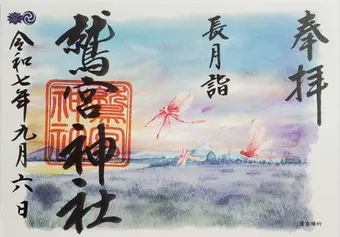 奉拝
長月詣
鷲宮神社
令和七年九月六日